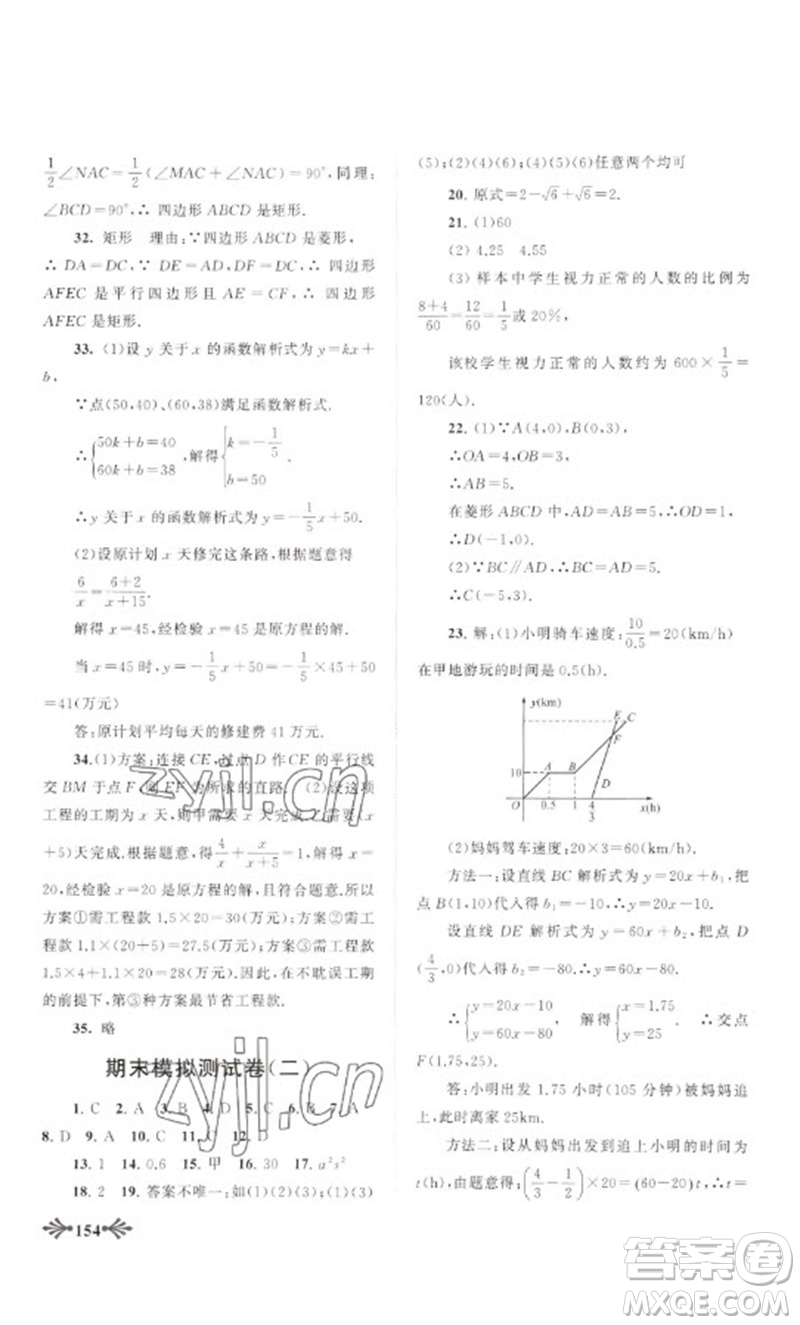 1/2∠NAC=1/2(∠MAC+∠NAC)=90°,同理:
∠BCD=90°,∴ 四边形 ABCD 是矩形.
32. 矩形 理由:∵四边形 ABCD 是菱形,
∴ DA=DC,∵ DE=AD,DF=DC,∴ 四边形
AFEC 是平行四边形且 AE=CF,∴ 四边形
AFEC 是矩形.
33. (1)设 y 关于 x 的函数解析式为 y=kx+
b,
∵点(50,40)、(60,38)满足函数解析式.
∴{50k+b=40 60k+b=38,解得{k=-1/5 b=50.
∴y 关于 x 的函数解析式为 y=-1/5x+50.
(2)设原计划 x 天修完这条路,根据题意得
6/x=(6+2)/(x+15).
解得 x=45,经检验 x=45 是原方程的解.
当 x=45 时,y=-1/5x+50=-1/5×45+50
=41(万元)
答:原计划平均每天的修建费 41 万元.
34.(1)方案:连接 CE,过点 D 作 CE 的平行线
交 BM 于点 F 则 EF 为所求的直路. (2)设这项
工程的工期为 x 天,则甲需要 x 天完成,乙需要(x
+5)天完成,根据题意,得4/x+x/(x+5)=1.解得 x=
20,经检验 x=20 是原方程的解,且符合题意.所以
方案①需工程款 1.5×20=30(万元);方案②需工
程款 1.1×(20+5)=27.5(万元);方案③需工程款
1.5×4+1.1×20=28(万元).因此,在不耽误工期
的前提下,第③种方案最节省工程款.
35. 略
期末模拟测试卷(二)
1. C 2. A 3. B 4. D 5. B 6. C 7. A
8. D 9. A 10. C 11. 12. D
13. 1 14. 0.6 15. 甲 16. 30 17. a²s²
18. 2 19. 答案不唯一:如(1)(2)(3);(1)(3)
154
(5);(2)(4)(6);(4)(5)(6)任意两个均可
20. 原式=2-√6+√6=2.
21. (1)60
(2) 4.25 4.55
(3) 样本中学生视力正常的人数的比例为
(8+4)/60=12/60=1/5或 20%,
该校学生视力正常的人数约为 600×1/5=
120(人).
22. (1)∵A(4,0),B(0,3),
∴OA=4,OB=3.
∴AB=5.
在菱形 ABCD 中,AD=AB=5,∴OD=1,
∴D(-1,0).
(2)∵BC∥AD,∴BC=AB=AD=5.
∴C(-5,3).
23. 解:(1)小明骑车速度:10/0.5=20(km/h)
在甲地游玩的时间是 0.5(h).
y(km)
E C
F
10 A B
D
O 0.5 1 4/3 x(h)
(2)妈妈驾车速度:20×3=60(km/h)
方法一:设直线 BC 解析式为 y=20x+b₁,把
点 B(1,10)代入得 b₁=-10.
∴y=20x-10.
设直线 DE 解析式为 y=60x+b₂,把点 D
(4/3,0)代入得 b₂=-80∴y=60x-80.
∴{y=20x-10 y=60x-80 解得{x=1.75 y=25. ∴交点
F(1.75,25).
答:小明出发 1.75 小时(105 分钟)被妈妈追
上,此时离家 25km.
方法二:设从妈妈出发到追上小明的时间为
t(h),由题意得:(4/3-1/2)×20=(60-20)t,t=
zyjl.cn
答案卷
MXQE.COM